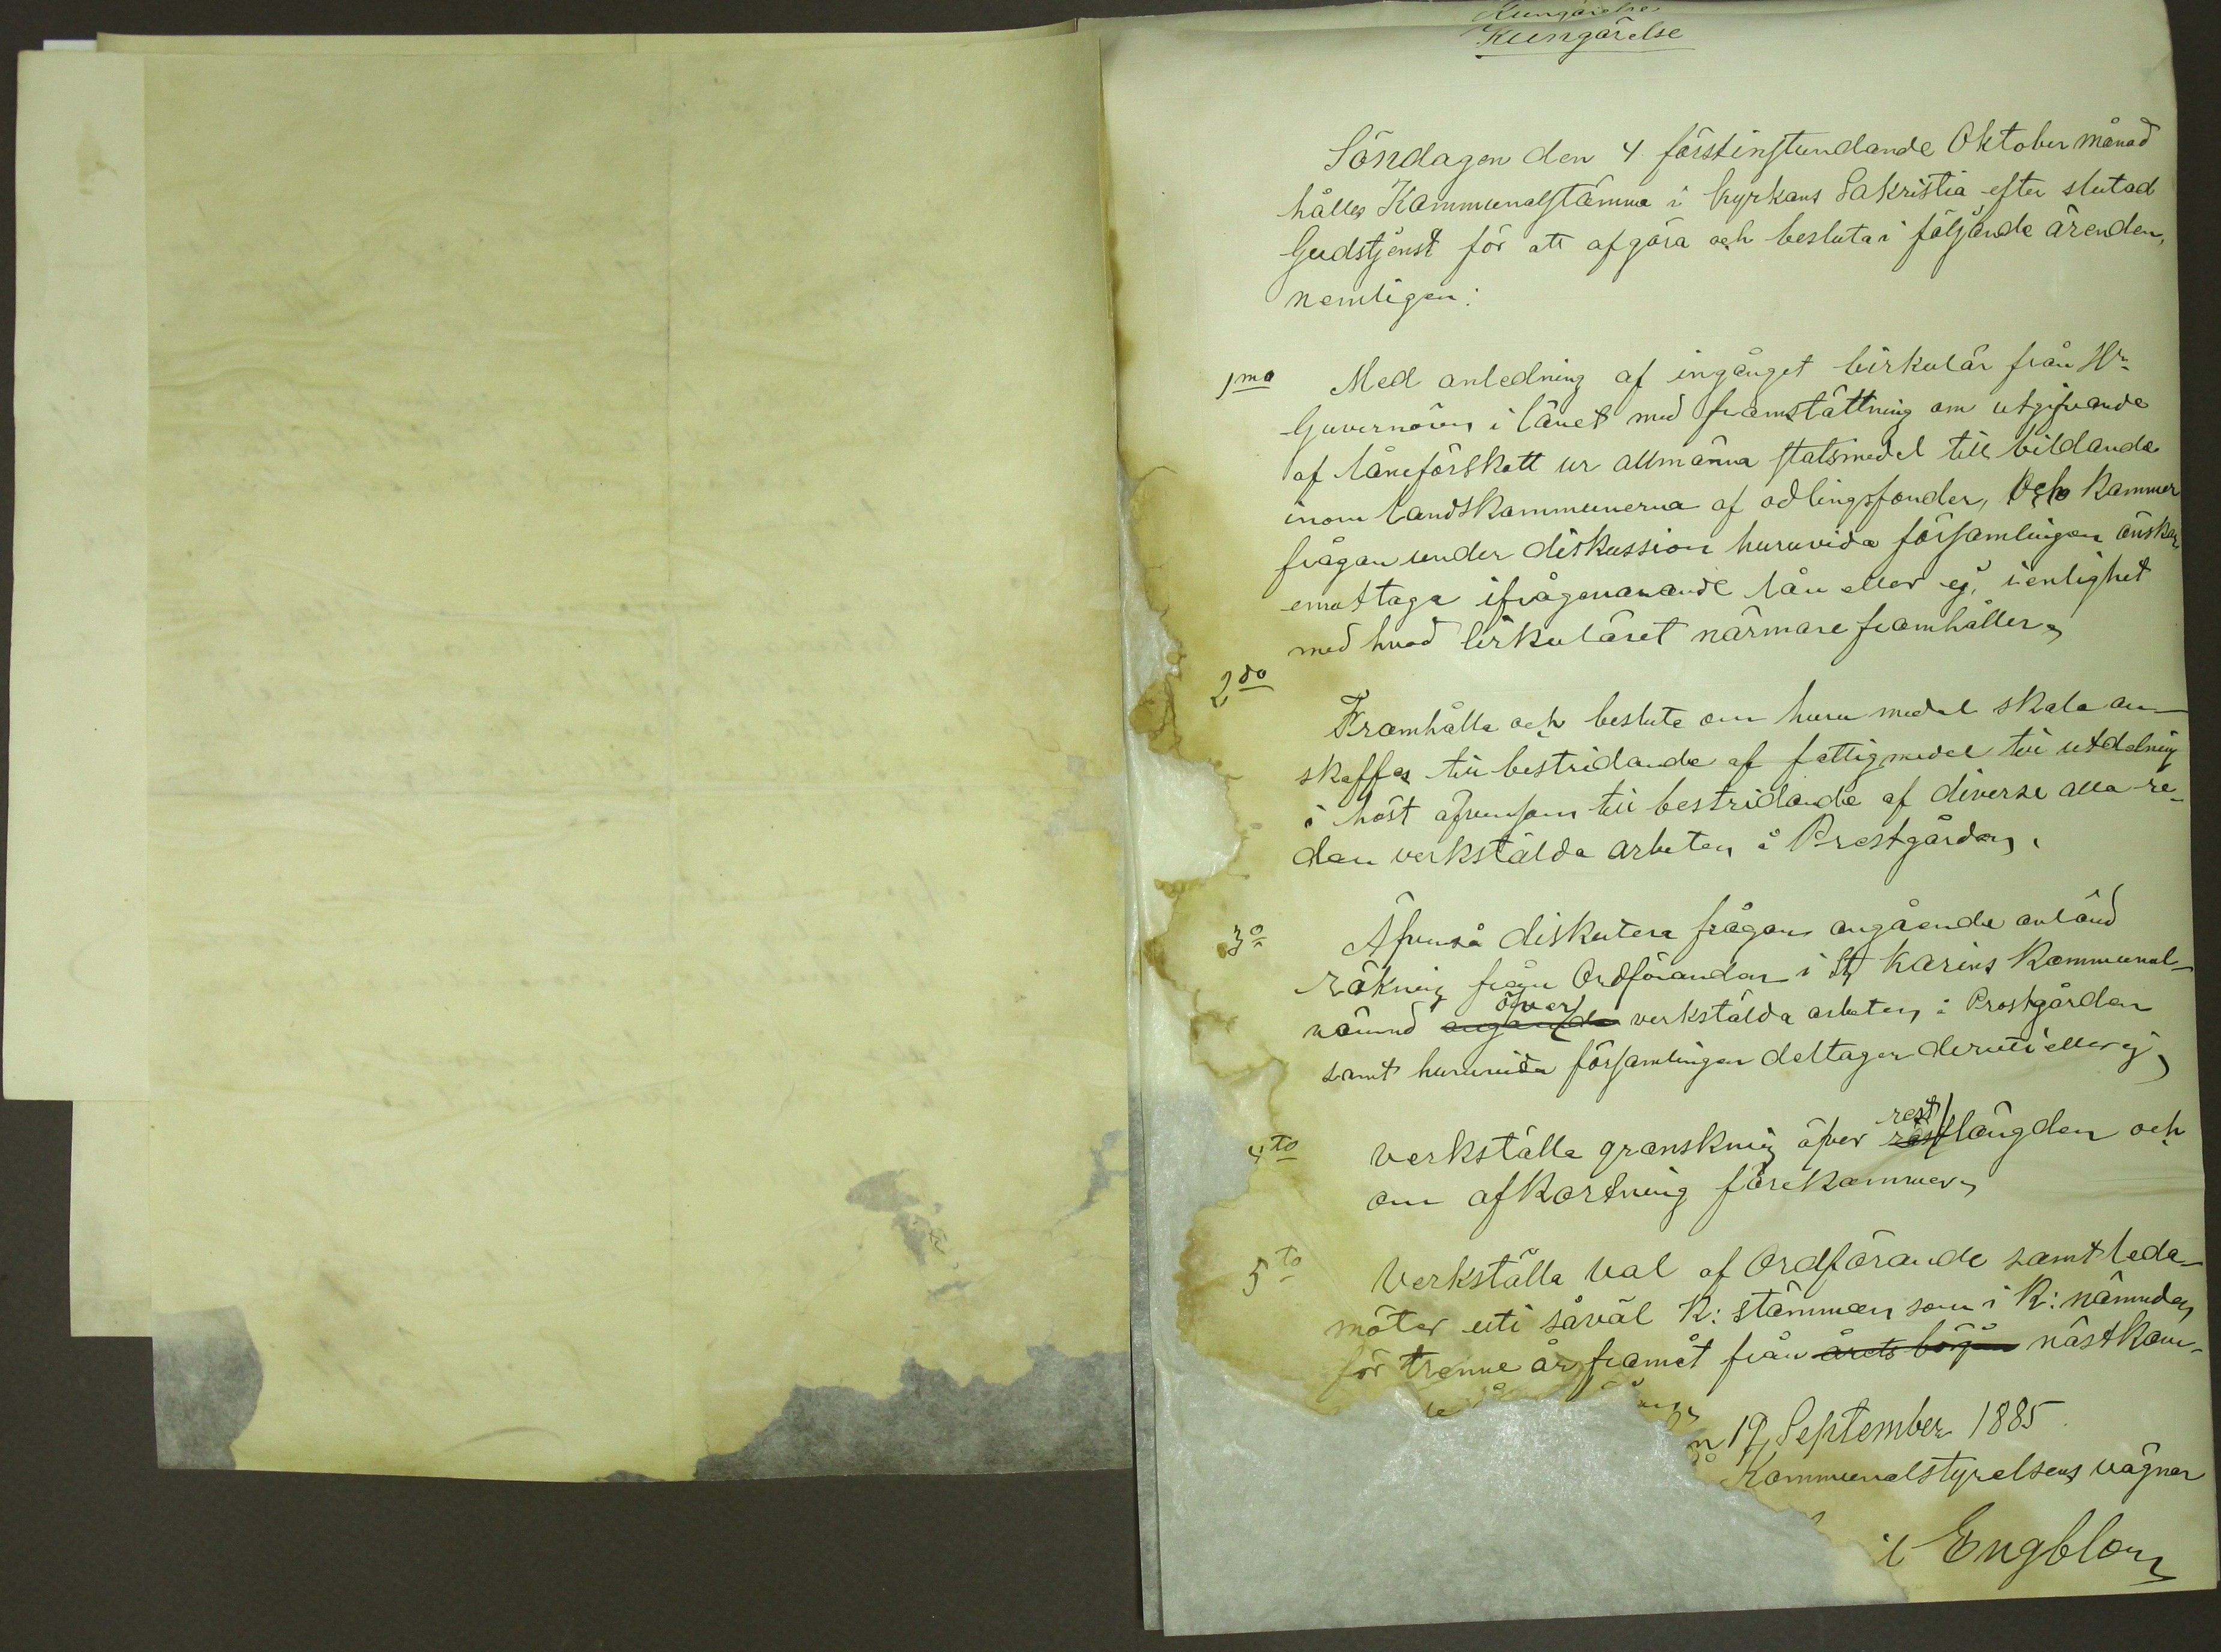 Kungörelse
Kungörelse
Söndagen den 4 förstinstundande Oktober månad
hålles Kommunalstämma i kyrkans Sakristia efter slutad
Gudstjenst för att afgöra och besluta i följande ärenden,
nemligen:
1mo Med anledning af ingånget Cirkulär från Hr
Guvernören i länet med framställning om utgifvande
af låneförskott ur allmänna statsmedel till bildande
inom landskommunerna af odlingsfonder, kommer
frågan under diskussion huruvida församlingen önskar
emottaga ifrågavarande lån eller ej, i enlighet
med hvad Cirkuläret närmare framhåller,
2do
Framhålla och besluta om huru medel skola an-
skaffas till bestridande af fattigmedel till utdelning
i höst äfvensom till bestridande af diverse alla re-
dan verkstälda arbeten å Prestgården.
3o Äfvenså diskutera frågan angående anländ
räkning från Ordföranden i St Karins Kommunal-
nämnd angående öfver verkstälda arbeten i Prostgården
samt huruvida församlingen deltager deruti eller ej,
4to Verkställa granskning öfver rest längden och
om afkortning förekommer,
5to Verkställa val af Ordförande samt leda-
möter uti såväl K: stämman som i K: nämnden
för trenne år framåt från årets början nästkom-
n 19 September 1885.
Kommunalstyrelsens vägnar
Engblom